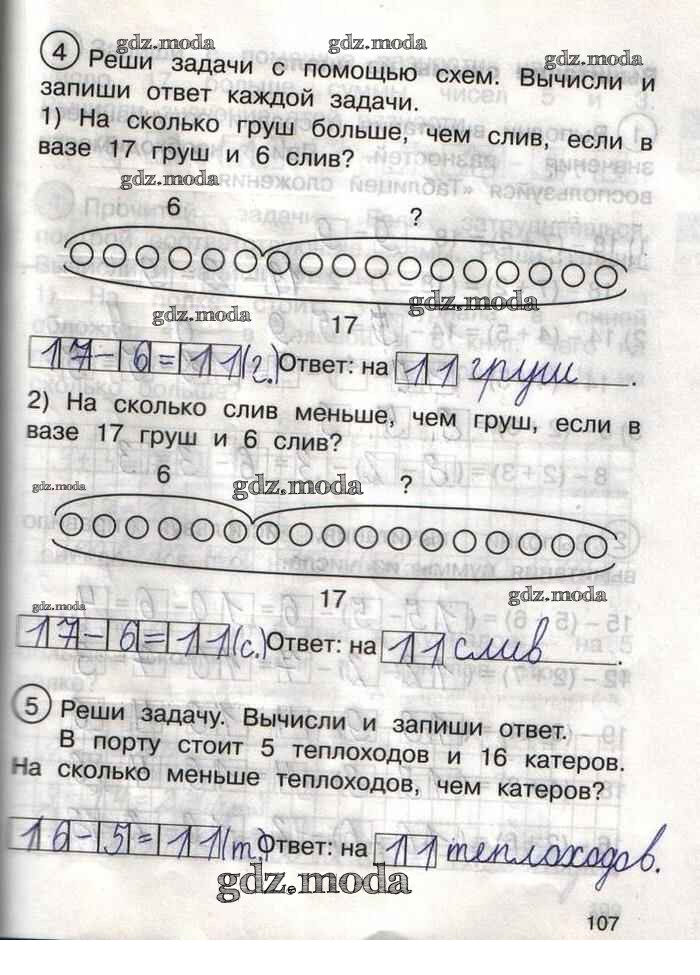 gdz.moda gdz.moda gdz.moda
4 Реши задачи с помощью схем. Вычисли и
запиши ответ каждой задачи.
1) На сколько груш больше, чем слив, если в
вазе 17 груш и 6 слив?
gdz.moda
6 ?
gdz.moda gdz.moda
17
17-6=11(г.) Ответ: на 11 груш.
2) На сколько слив меньше, чем груш, если в
вазе 17 груш и 6 слив?
gdz.moda 6 gdz.moda ?
17
gdz.moda gdz.moda
17-6=11(с.) Ответ: на 11 слив.
gdz.moda
5 Реши задачу. Вычисли и запиши ответ.
В порту стоит 5 теплоходов и 16 катеров.
На сколько меньше теплоходов, чем катеров?
16-5=11(т.) Ответ: на 11 теплоходов.
gdz.moda
107